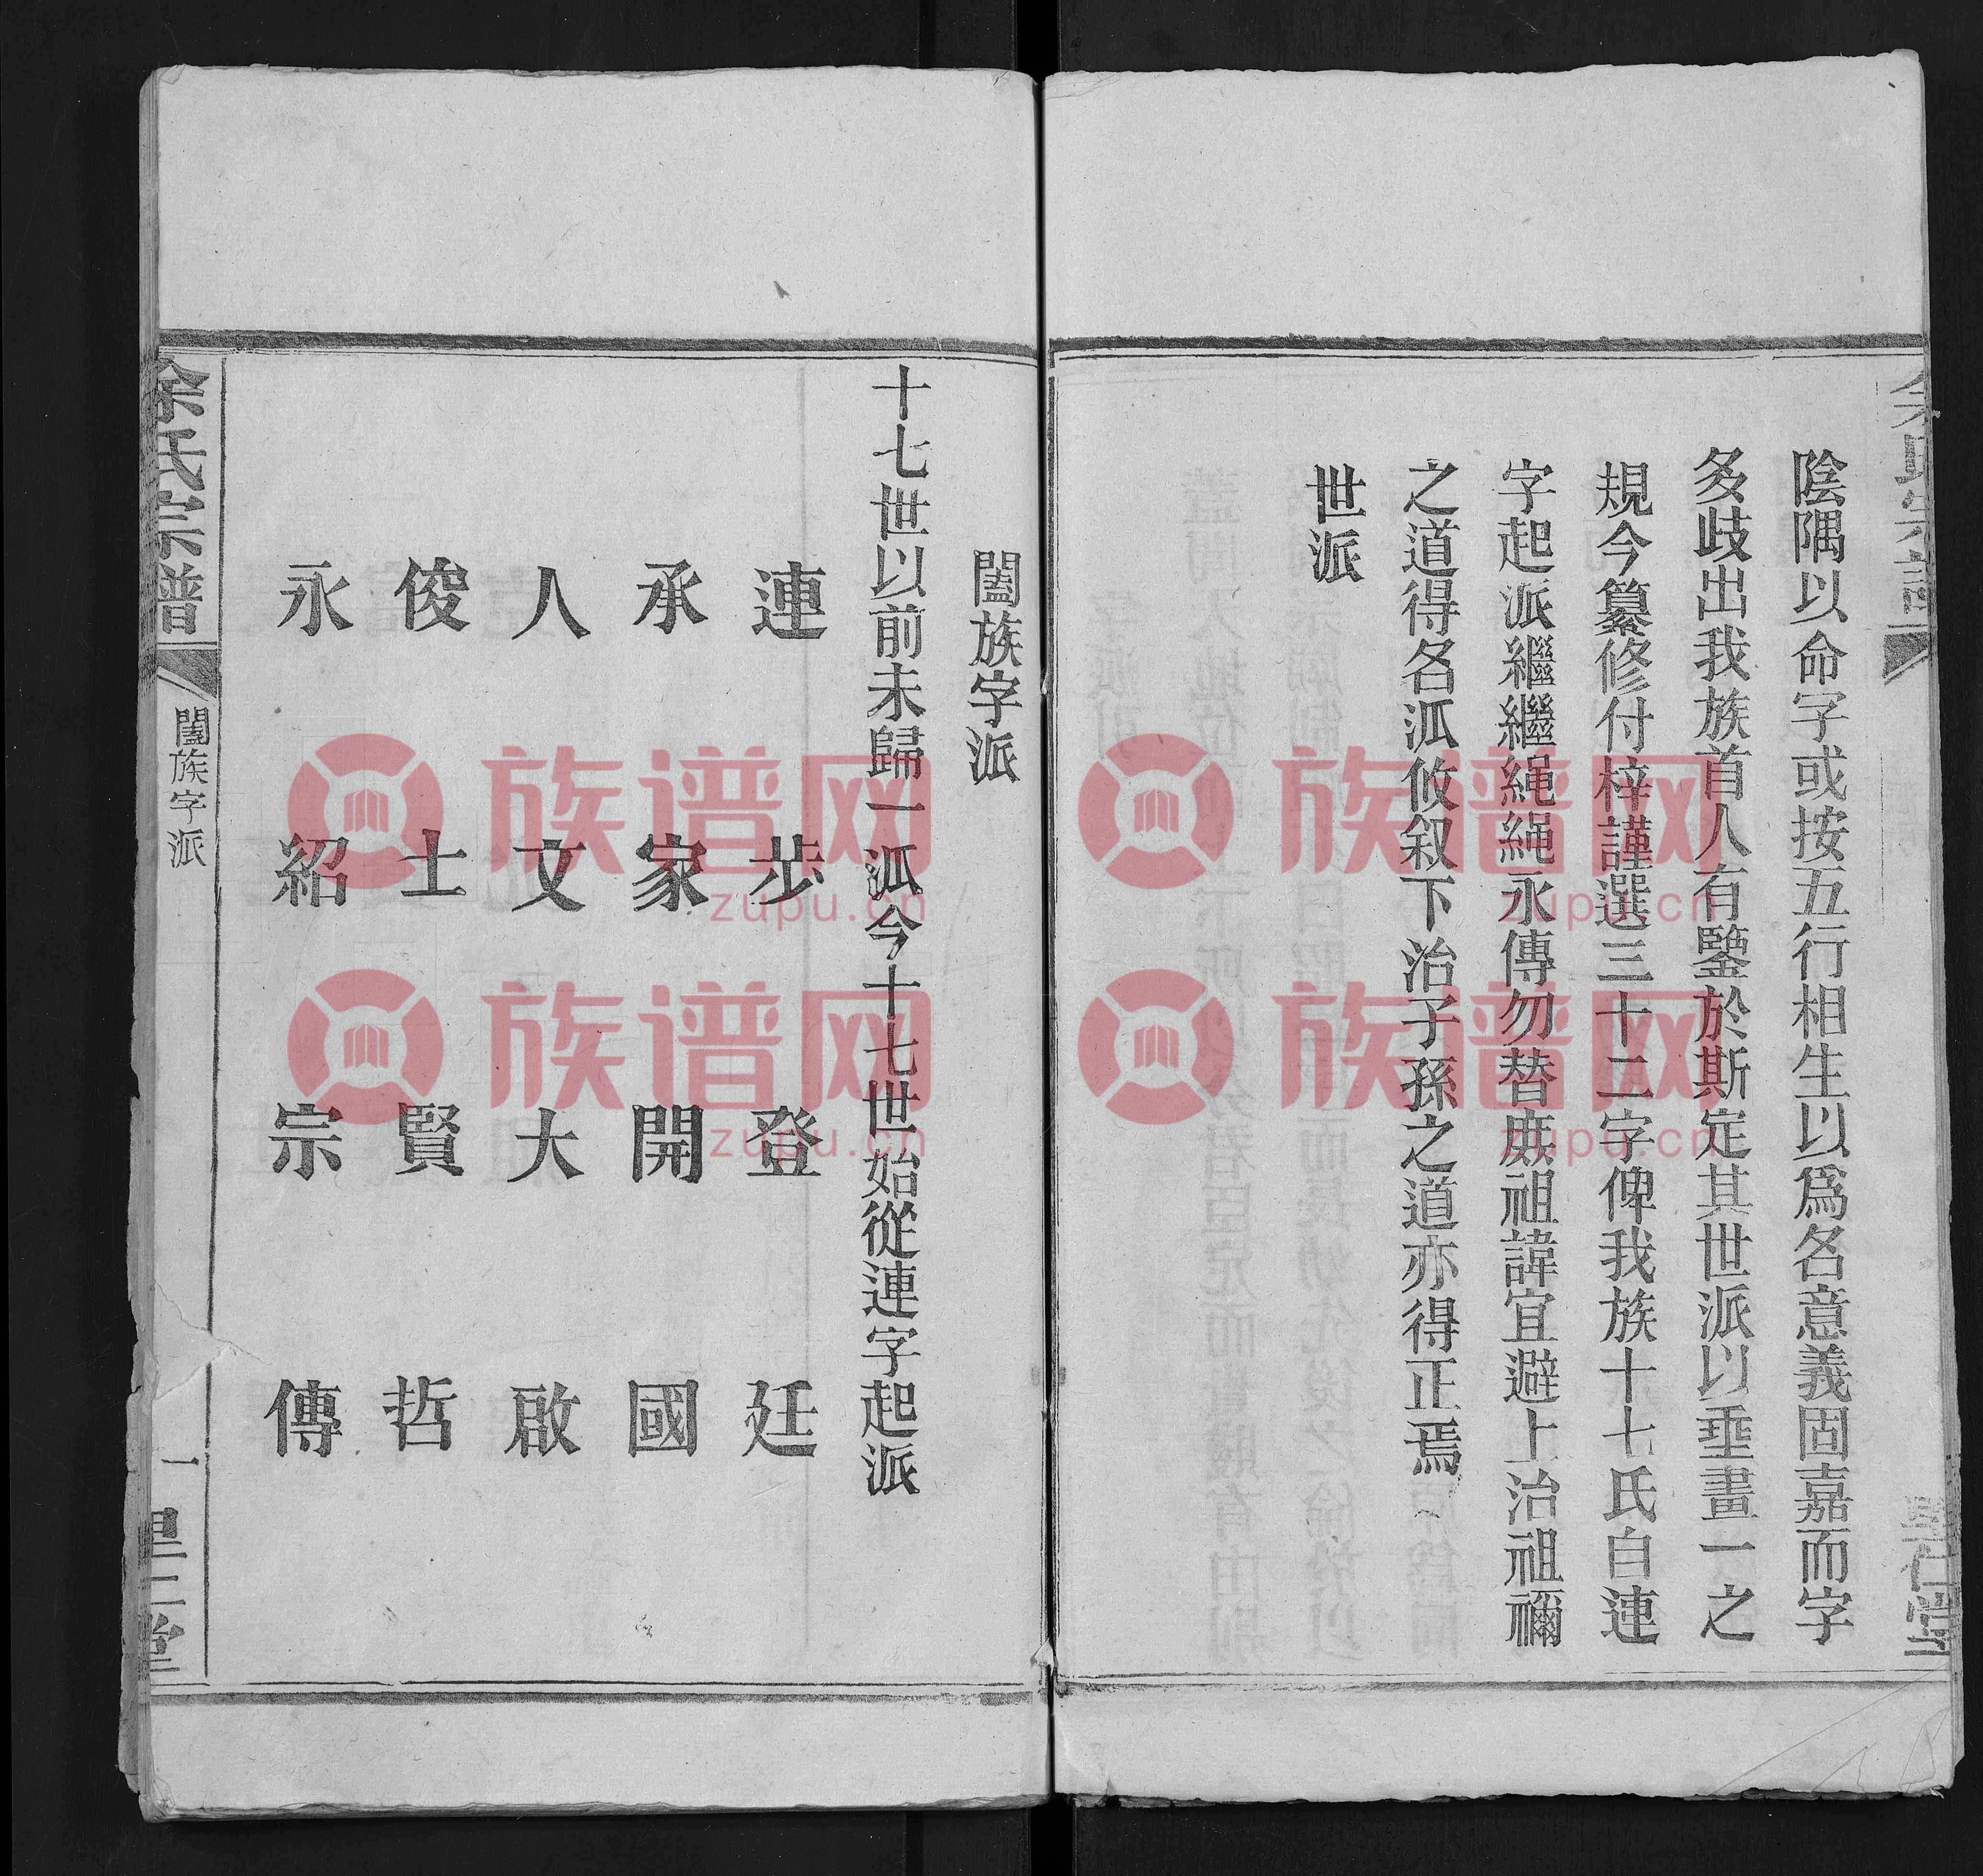 余氏宗譜
陰隅以命字或按五行相生以爲名意義固嘉而字
多歧出我族首人有鑒於斯定其世派以垂畫一之
規今纂修付梓謹選三十二字俾我族十七氏自連
字起派繼繼繩繩永傳勿替庶祖諱宜避上治祖禰
之道得名派攸叙下治子孫之道亦得正焉
世派
闔族字派
十七世以前未歸一派今十七世始從連字起派
連 步 登 廷
承 家 開 國
人 文 大 啟
俊 士 賢 哲
永 紹 宗 傳
余氏宗譜
闔族字派
一
族谱网
zupu.cn
族谱网
zupu.cn
族谱网
zupu.cn
族谱网
zupu.cn